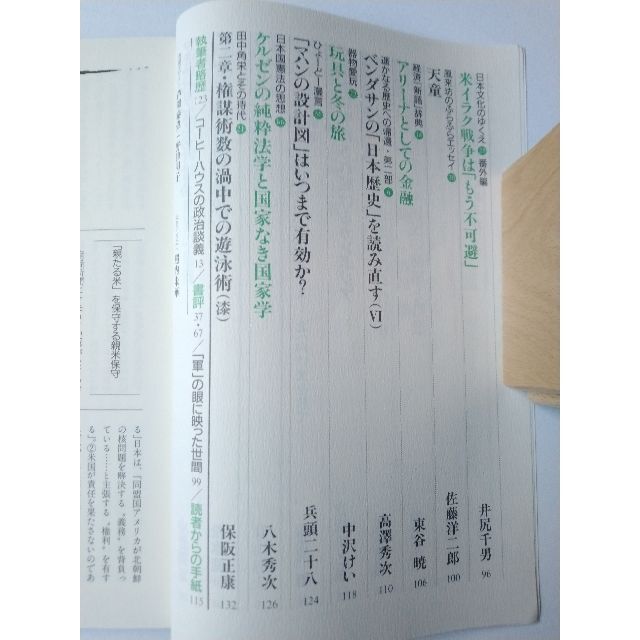 日本文化のゆくえ 番外編
米イラク戦争は「もう不可避」 井尻千男 96
風来坊のふらふらエッセイ
天童 佐藤洋二郎 100
経済「新語」辞典
アリーナとしての金融 東谷 暁 106
遥かなる歴史への循環・第二部
ベンダサンの「日本歴史」を読み直す(Ⅵ) 高澤秀次 110
器物愛玩
玩具と冬の旅 中沢けい 118
ひょーどー漫言
「マハンの設計図」はいつまで有効か? 兵頭二十八 124
日本国憲法の思想
ケルゼンの純粋法学と国家なき国家学 八木秀次 126
田中角栄とその時代
第二章・権謀術数の渦中での遊泳術(漆) 保阪正康 132
執筆者略歴 123/コーヒーハウスの政治談義 13/書評 37・67/「軍」の眼に映った世間 99/読者からの手紙 115
「親たる米」を保守する親米保守
る』日本は、「同盟国アメリカが北朝鮮
の核問題を解決する〝義務〟を背負っ
ている……と主張する〝権利〟を有す
る』②米国が責任を果たさないのであ